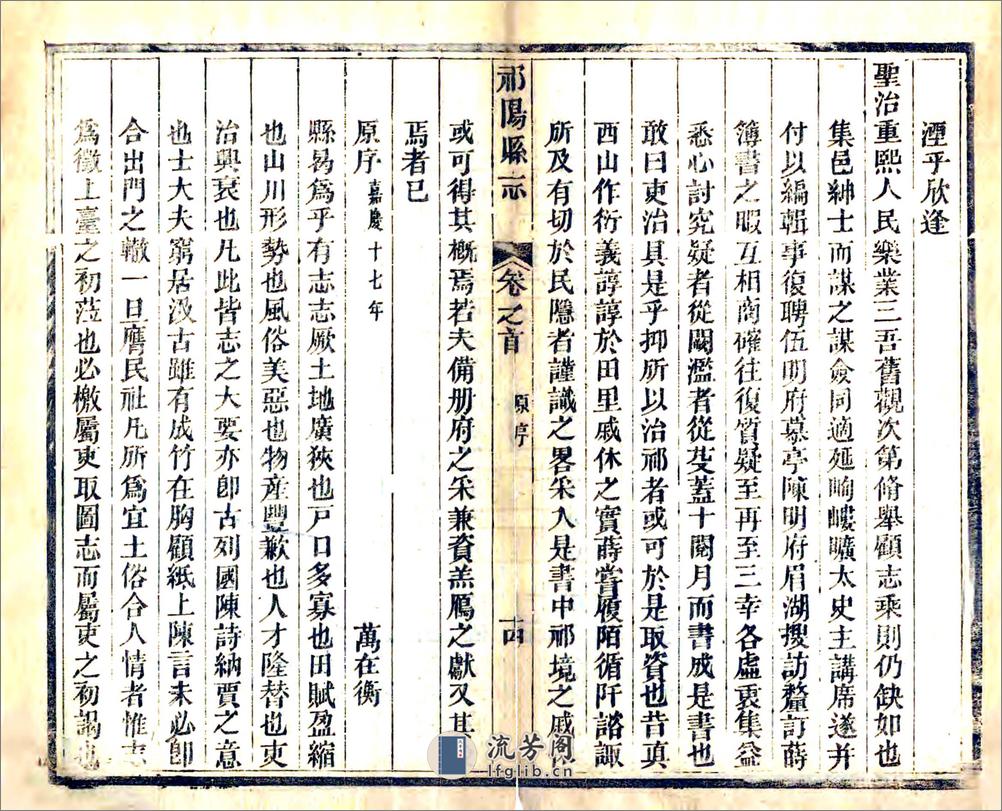 湮乎欣逢
聖治重熙人民樂業三吾舊觀次第脩舉顧志乘則仍缺如也
集邑紳士而謀之謀僉同適延峋嶁曠太史主講席遂并
付以編輯事復聘伍明府慕亭陳明府眉湖搜訪釐訂蒔
簿書之暇互相商確往復質疑至再至三幸各虛衷集益
悉心討究疑者從闕濫者從芟蓋十閱月而書成是書也
敢曰吏治具是乎抑所以治祁者或可於是取資也昔真
西山作衍義諄諄於田里戚休之實蒔嘗履陌循阡諮諏
所及有切於民隱者謹識之畧采入是書中祁境之戚
祁陽縣志
卷之首
原序
十四
或可得其概焉若夫備册府之采兼資羔鴈之獻又其
焉者已
原序 嘉慶十七年 萬在衡
縣曷爲乎有志志厥土地廣狹也戸口多寡也田賦盈縮
也山川形勢也風俗美惡也物産豐歉也人才隆替也吏
治興衰也凡此皆志之大要亦卽古列國陳詩納賈之意
也士大夫窮居汲古雖有成竹在胸顧紙上陳言未必卽
合出門之轍一旦膺民社凡所爲宜土俗合人情者惟志
爲徵上臺之初蒞也必檄屬吏取圖志而屬吏之初謁也
流芳阁
lfglib.cn